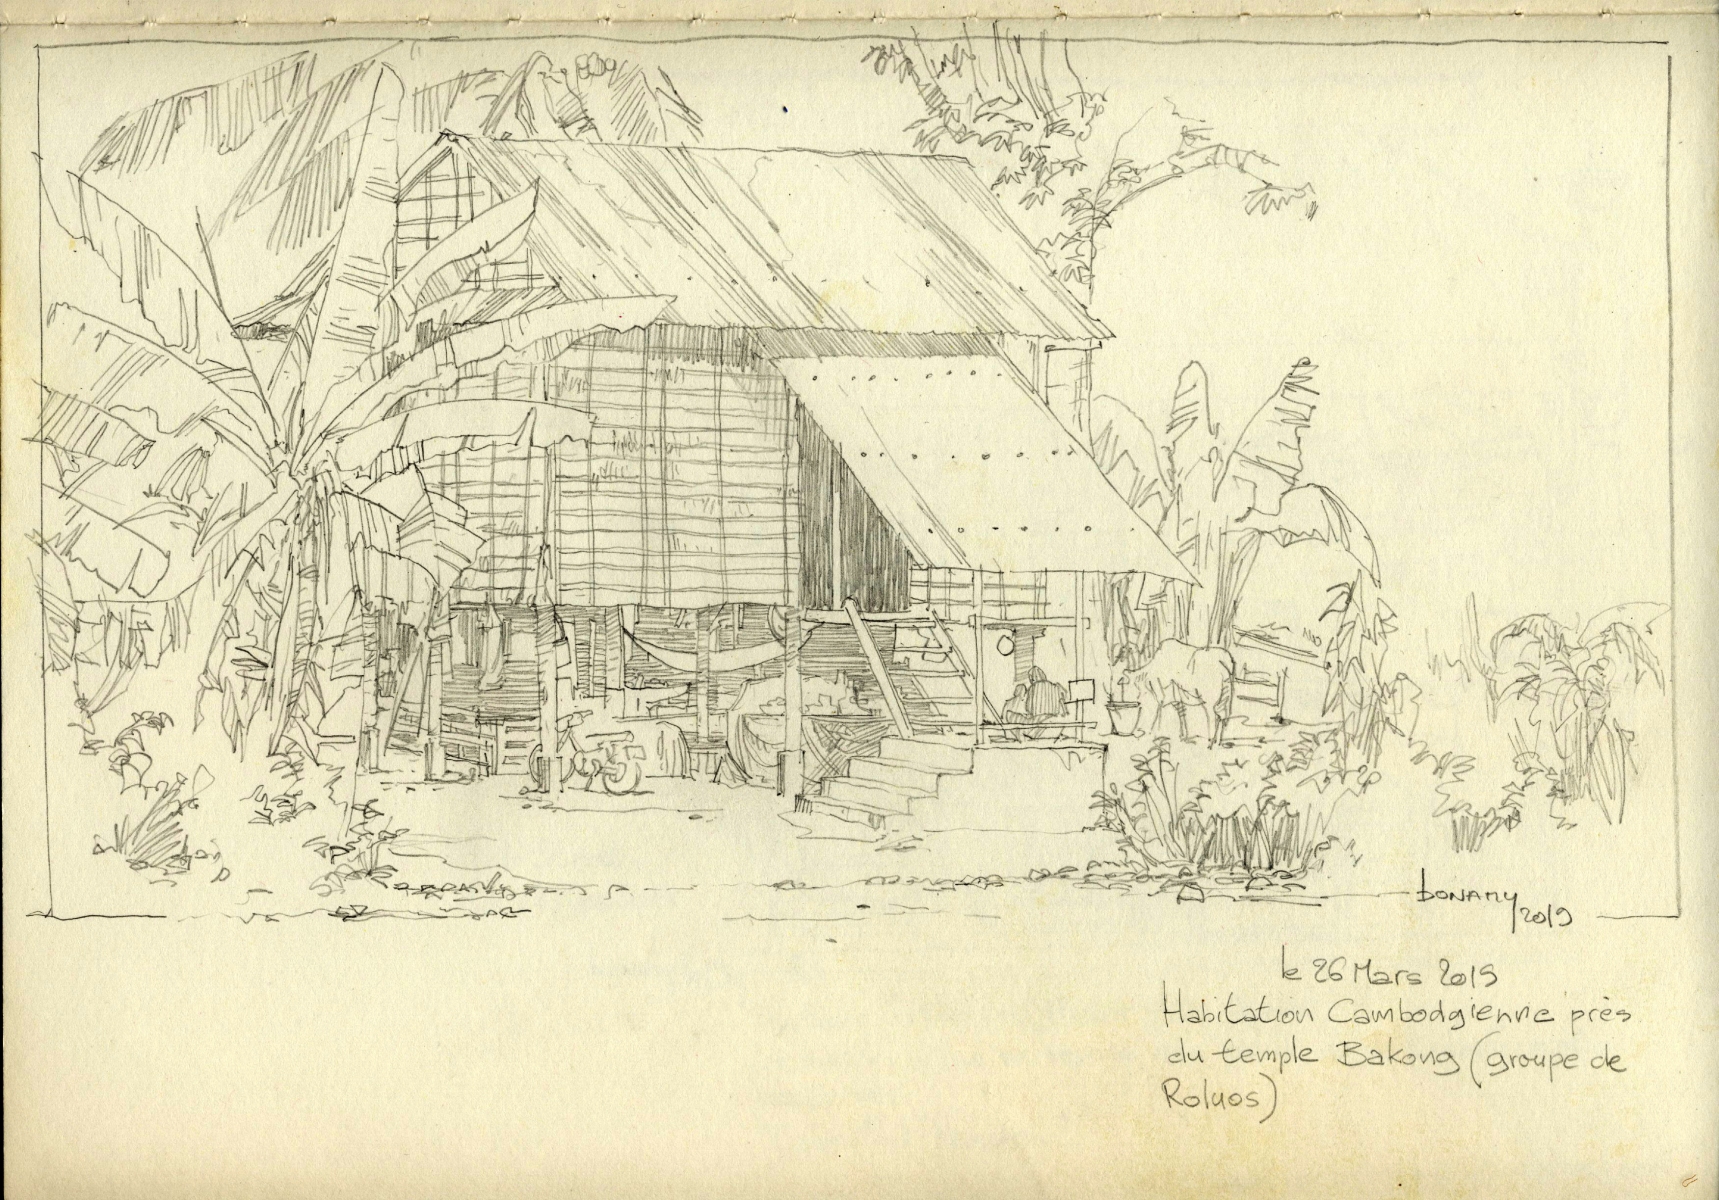 bonamy
/2019
le 26 Mars 2019
Habitation Cambodgienne près
du temple Bakong (groupe de
Roluos)